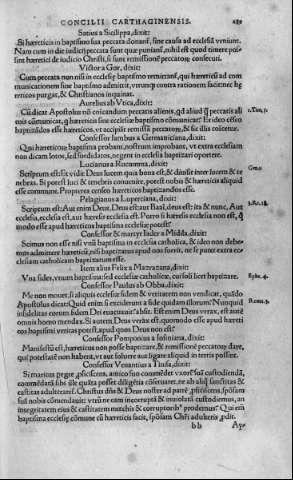 CONCILII CARTHAGINENSIS. 289
Satius a Sicilippa, dixit:
Si hæreticis in baptismo sua peccata donantur, sine causa ad ecclesiã veniunt.
Nam cum in die iudicij peccata sunt quæ puniantur, nihil est quod timere possint
hæretici de iudicio Christi, si sunt remissionẽ peccatorum consecuti.
Victor a Gor, dixit:
Cum peccata non nisi in ecclesiæ baptismo remittantur, qui hæreticũ ad communicationem
sine baptismo admittit, utrunque contra rationem facit: nec hæreticos
purgat, & Christianos inquinat.
Aurelius ab Vtica, dixit:
Cũ dicat Apostolus nõ cõicandum peccatis alienis, qd̃ aliud ꝙ̃ peccatis alienis
cõicat, q̃ hæreticis sine ecclesiæ baptismo cõmunicat? Et ideo cẽseo
baptizãdos esse hæreticos, ut accipiãt remissã peccatorũ, & sic illis cõicetur.
1.Tim.5.
Confessor Iambus a Germaniciana, dixit:
Qui hæreticorũ baptisma probant, nostrum improbant, ut extra ecclesiam
non dicam lotos, sed sordidatos, negent in ecclesia baptizari oportere.
Lucianus a Rucuma, dixit:
Scriptum est: Et vidit Deus lucem quia bona est, & diuisit inter lucem & tenebras.
Gen.1.
Si potest luci & tenebris conuenire, potest nobis & hæreticis aliquid
esse commune. Propterea censeo hæreticos baptizandos esse.
Pelagianus a Luperciana, dixit:
Scriptum est: Aut enim Deus, Deus est: aut Baal, deus est: ita & nunc, Aut
3.Re.18.
ecclesia, ecclesia est, aut hæresis ecclesia est. Porro si hæresis ecclesia non est, quomodo
esse apud hæreticos baptisma ecclesiæ potest?
Confessor & martyr Iader a Midila, dixit:
Scimus non esse nisi vnũ baptisma in ecclesia catholica, & ideo non debemus
admittere hæreticũ, nisi baptizatus apud nos fuerit, ne se putet extra ecclesiam
catholicam baptizatum esse.
Item alius Felix a Marazana, dixit:
Vna fides, vnum baptisma: sed ecclesiæ catholicæ, cui soli licet baptizare.
Ephe.4.
Confessor Paulus ab Obba, dixit:
Me non mouet, si aliquis ecclesiæ fidem & veritatem non vendicat, quãdo
Apostolus dicat: Quid enim si exciderunt a fide quidam illorum? Nunquid
Rom.3.
infidelitas eorum fidem Dei euacuauit? absit. Est enim Deus verax, est autẽ
omnis homo mendax. Si autem Deus verax est, quomodo esse apud hæreticos
baptismi veritas potest, apud quos Deus non est?
Confessor Pomponius a
Manifestũ est, hæreticos non posse baptizare, & remissionẽ peccatorũ dare,
qui potestatẽ non habent, vt aut soluere aut ligare aliquid in terris possint.
Confessor Venantius a Tinisa, dixit:
Si maritus peregre proficiscens, amico suo commẽdet vxorẽ suã custodiendã,
commẽdatã sibi ille quãta posset diligẽtia cõseruaret, ne ab aliq̃ sanctitas &
castitas adulteraret.
integritatem eius & castitatem
baptisma ecclesiæ cõmune cũ hæreticis facit,
b b